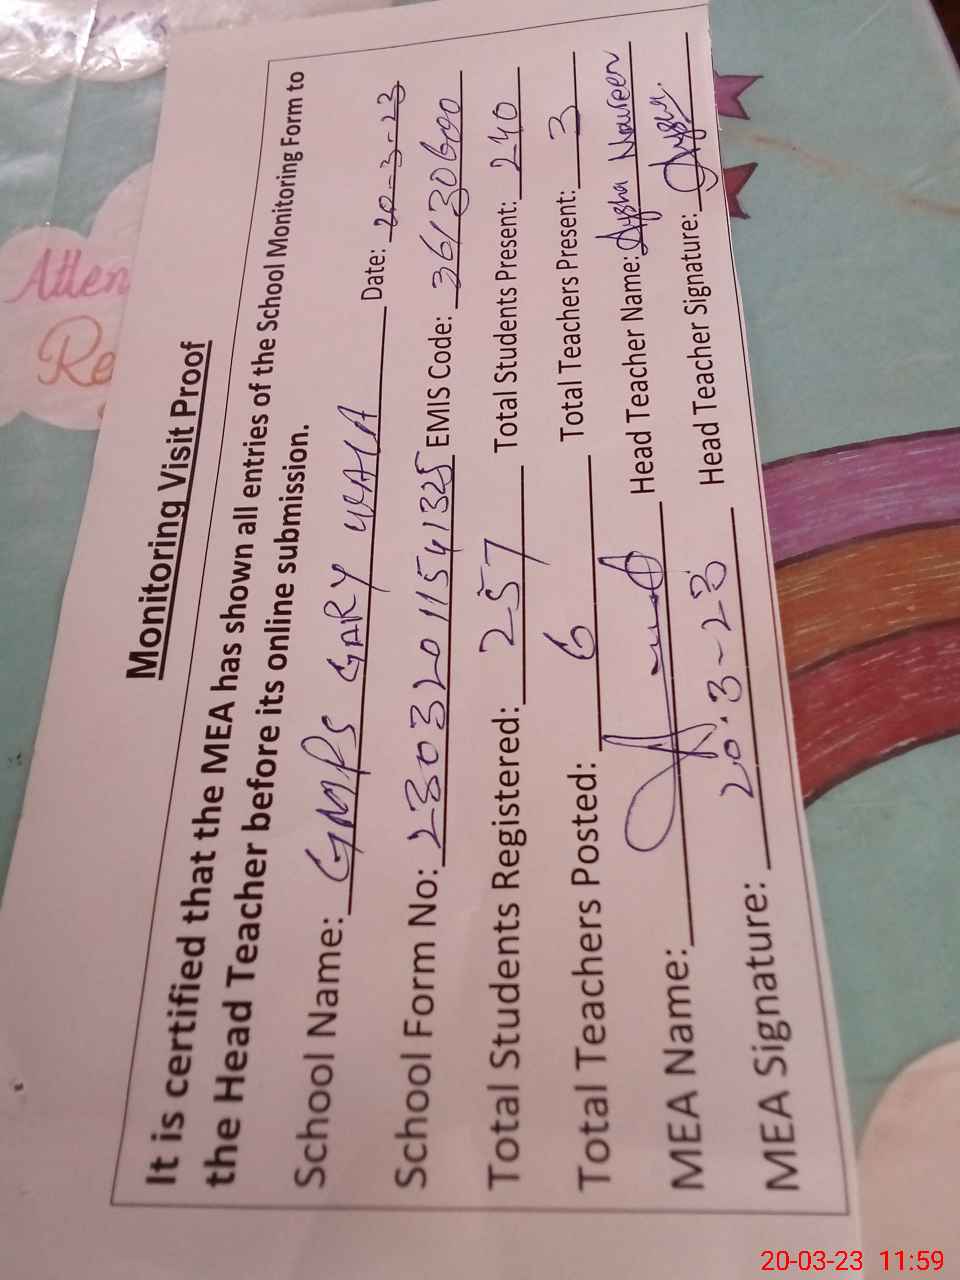 Monitoring Visit Proof
It is certified that the MEA has shown all entries of the School Monitoring Form to
the Head Teacher before its online submission.
School Name: GMPS GARY WALA Date: 20-3-23
School Form No: 23032011541325 EMIS Code: 36130600
Total Students Registered: 257 Total Students Present: 240
Total Teachers Posted: 6 Total Teachers Present: 3
MEA Name: Head Teacher Name: Aysha Naureen
MEA Signature: 20.3-23 Head Teacher Signature: Aysha.
Atten
Re
20-03-23 11:59